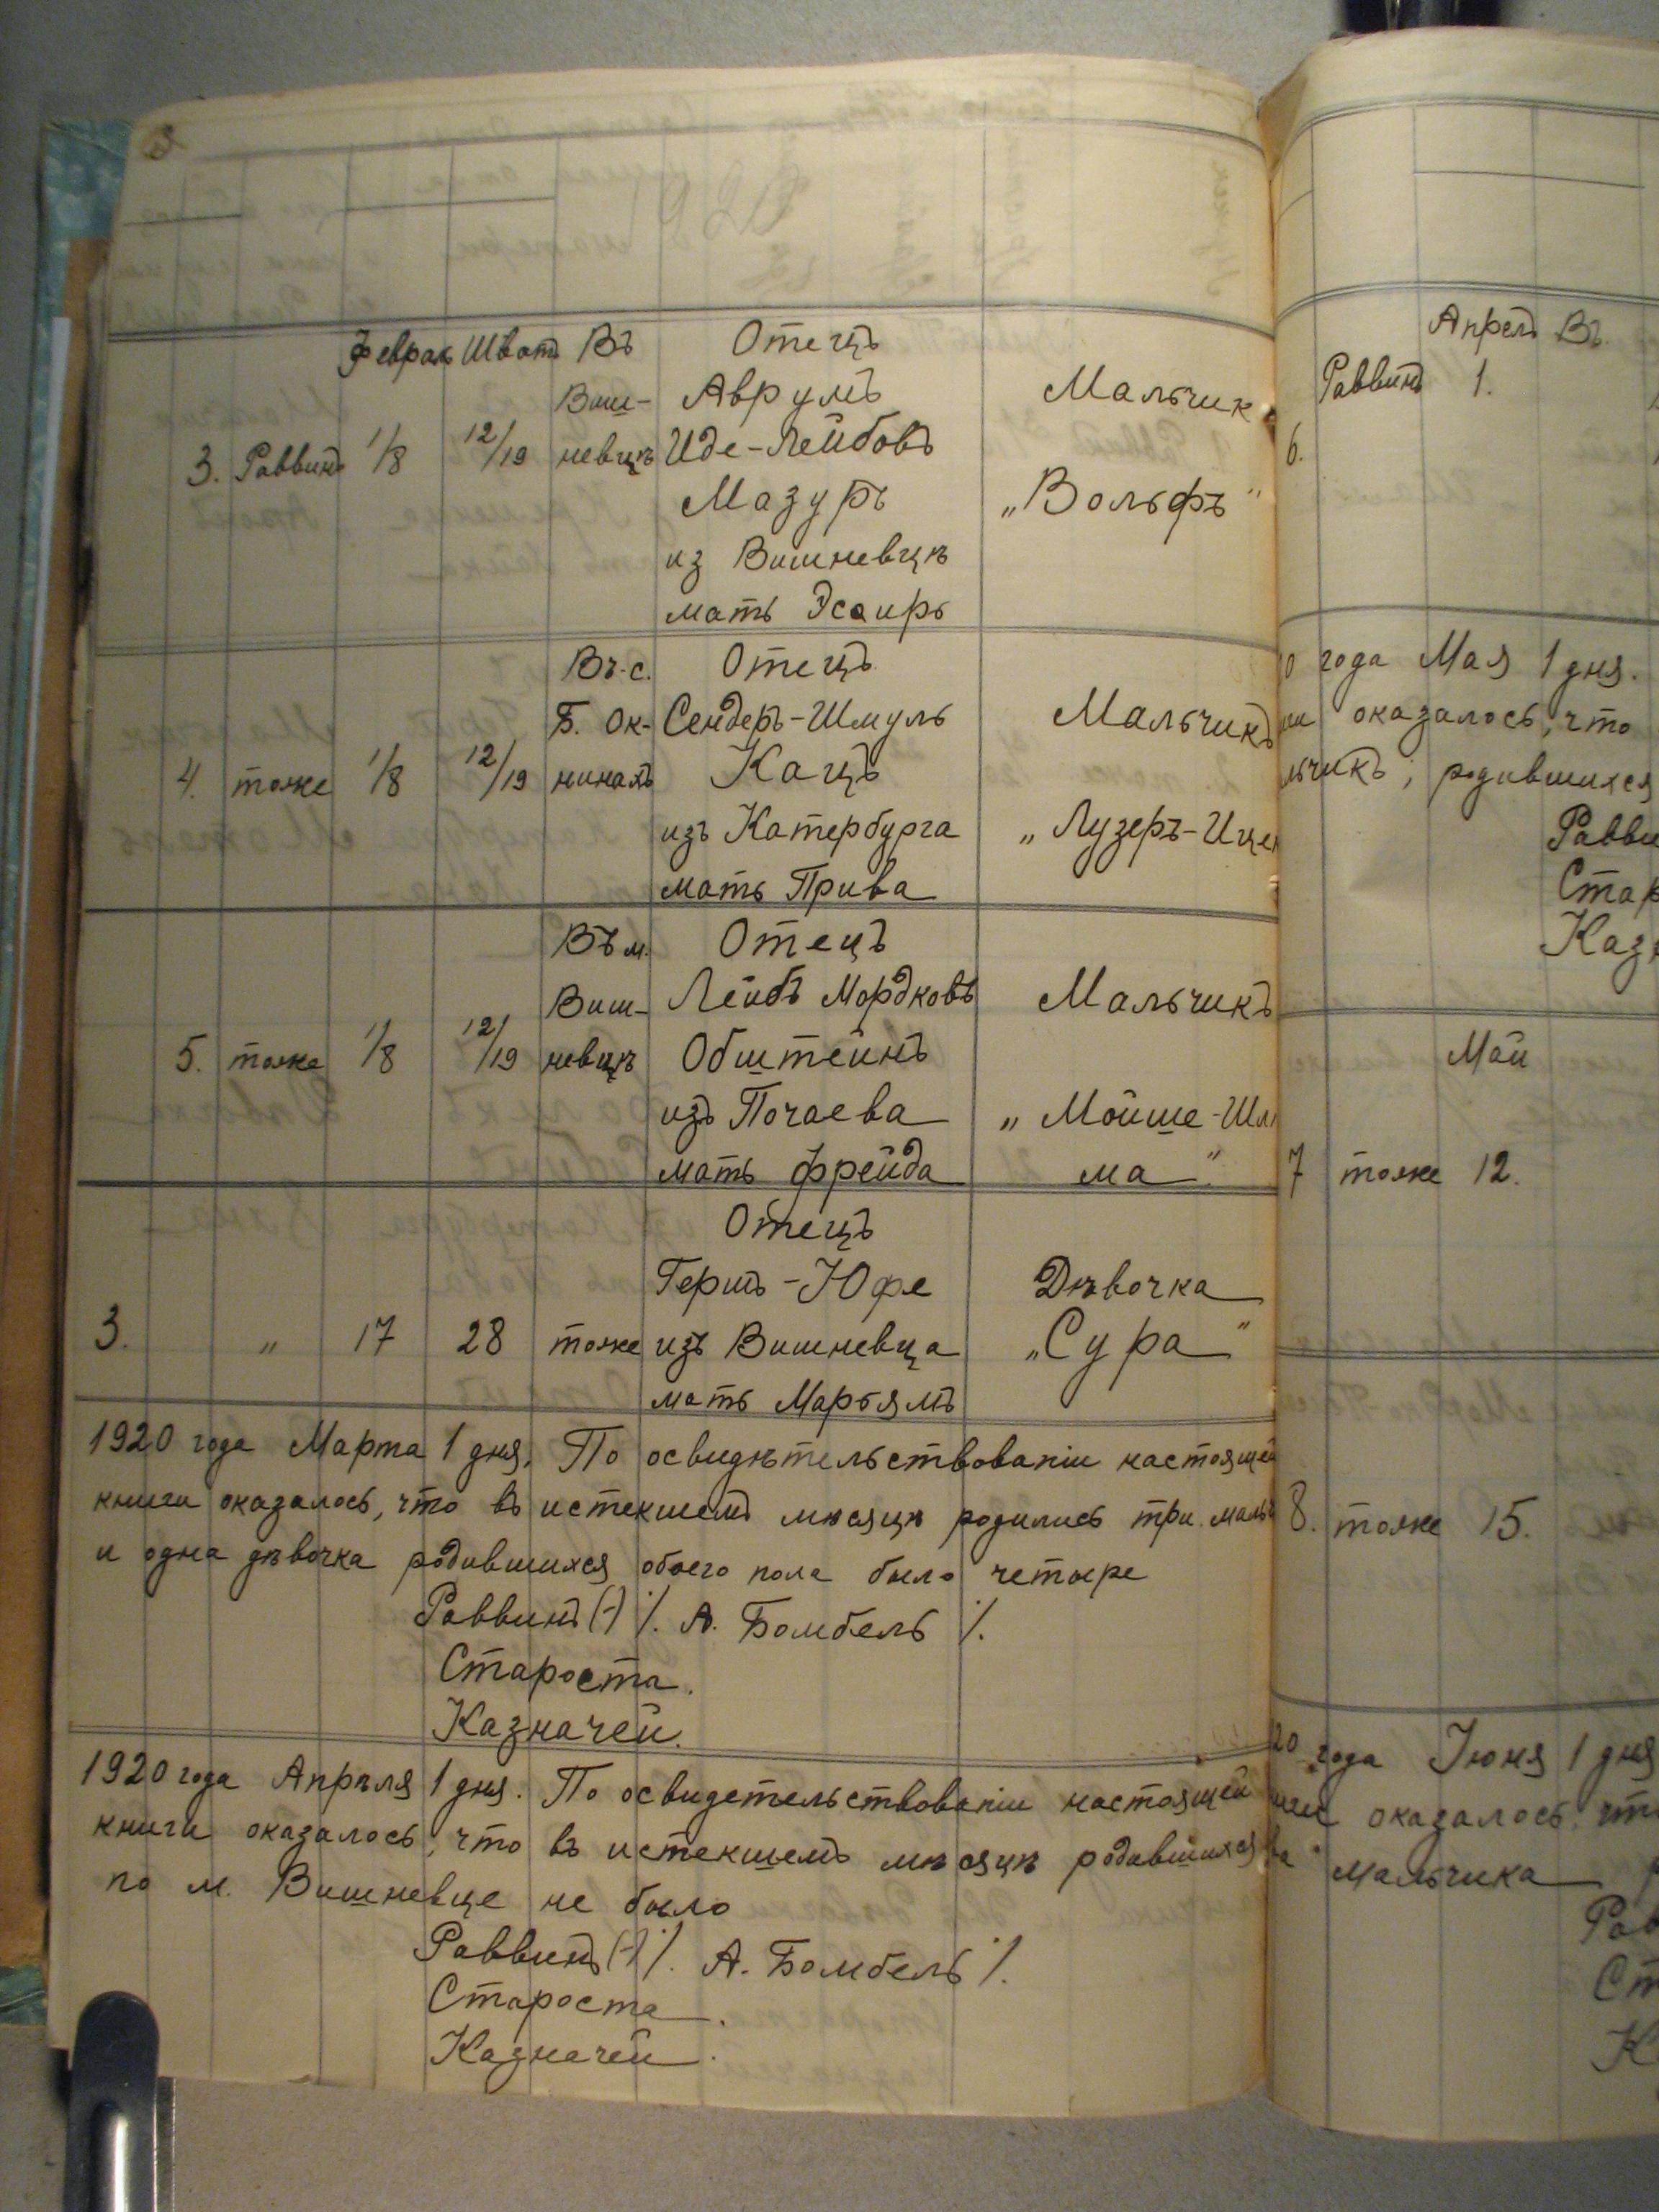 Февраль Шватъ Въ Отецъ
Виш- Аврумъ Мальчик
3. Раввинъ 1/8 12/19 невцѣ Иде-Лейбовъ
Мазуръ „Вольфъ“
из Вишневцѣ
мать Эсѳирь
Въ с. Отецъ
Б. Ок- Сендеръ-Шмуль Мальчикъ
4. тоже 1/8 12/19 нинахъ Кацъ
изъ Катербурга „Лузеръ-Ице
мать Прива
Въ м. Отецъ
Виш- Лейбъ Мордковъ Мальчикъ
5. тоже 1/8 12/19 невцѣ Обштейнъ
изъ Почаева „Мойше-Шл
мать Фрейда ма“
Отецъ
Гершъ-Юфе Дѣвочка
3. „ 17 28 тоже изъ Вишневца „Сура“
мать Марьямъ
1920 года Марта 1 дня. По освидѣтельствованіи настоящей
книги оказалось, что въ истекшемъ мѣсяцѣ родились три маль
и одна дѣвочка родившихся обоего пола было четыре
Раввинъ (-) ./. А. Бомбель ./.
Староста.
Казначей.
1920 года Апрѣля 1 дня. По освидетельствованіи настоящей
книги оказалось, что въ истекшемъ мѣсяцѣ родившихся
по м. Вишневце не было
Раввинъ (-) ./. А. Бомбель ./.
Староста.
Казначей.
Апрель Въ
Раввинъ 1.
6.
0 года Мая 1 дня.
ги оказалось, что
льчикъ; родившихся
Равви
Стар
Казн
Май
7 тоже 12.
8. тоже 15.
20 года Іюня 1 дня
оказалось, что
ва мальчика
Рав
Ст
К